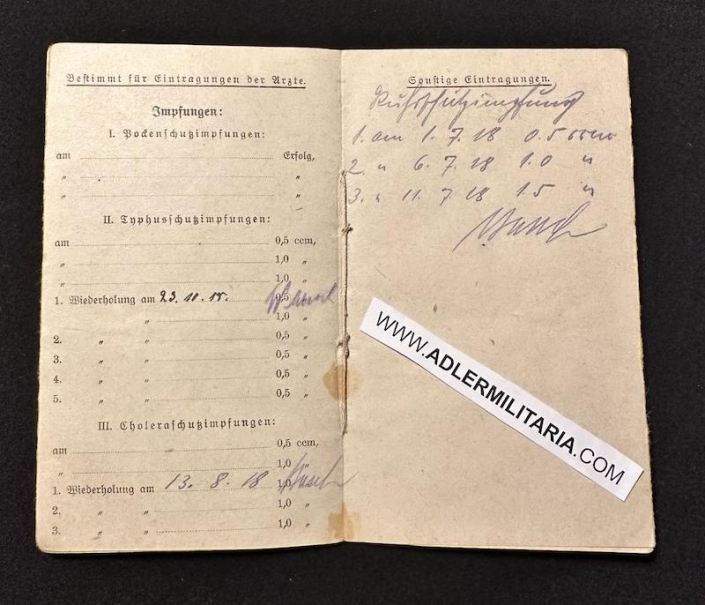 Bestimmt für Eintragungen der Ärzte.
Impfungen:
I. Pockenschutzimpfungen:
am Erfolg,
„ „
„ „
II. Typhusschutzimpfungen:
am 0,5 ccm,
„ 1,0 „
„ 1,0 „
1. Wiederholung am 0,5
„ 1,0 „
2. „ „ 0,5 „
3. „ „ 0,5 „
4. „ „ 0,5 „
5. „ „ 0,5 „
III. Choleraschutzimpfungen:
am 0,5 ccm,
„ 1,0 „
1. Wiederholung am 13. 8. 18 1,0
2. „ „ 1,0 „
3. „ „ 1,0 „
Sonstige Eintragungen.
Ruhrschutzimpfung
1. am 1. 7. 18 0.5 ccm
2. „ 6. 7. 18 1.0 „
3. „ 11. 7 18 1.5 „
WWW.ADLERMILITARIA.COM